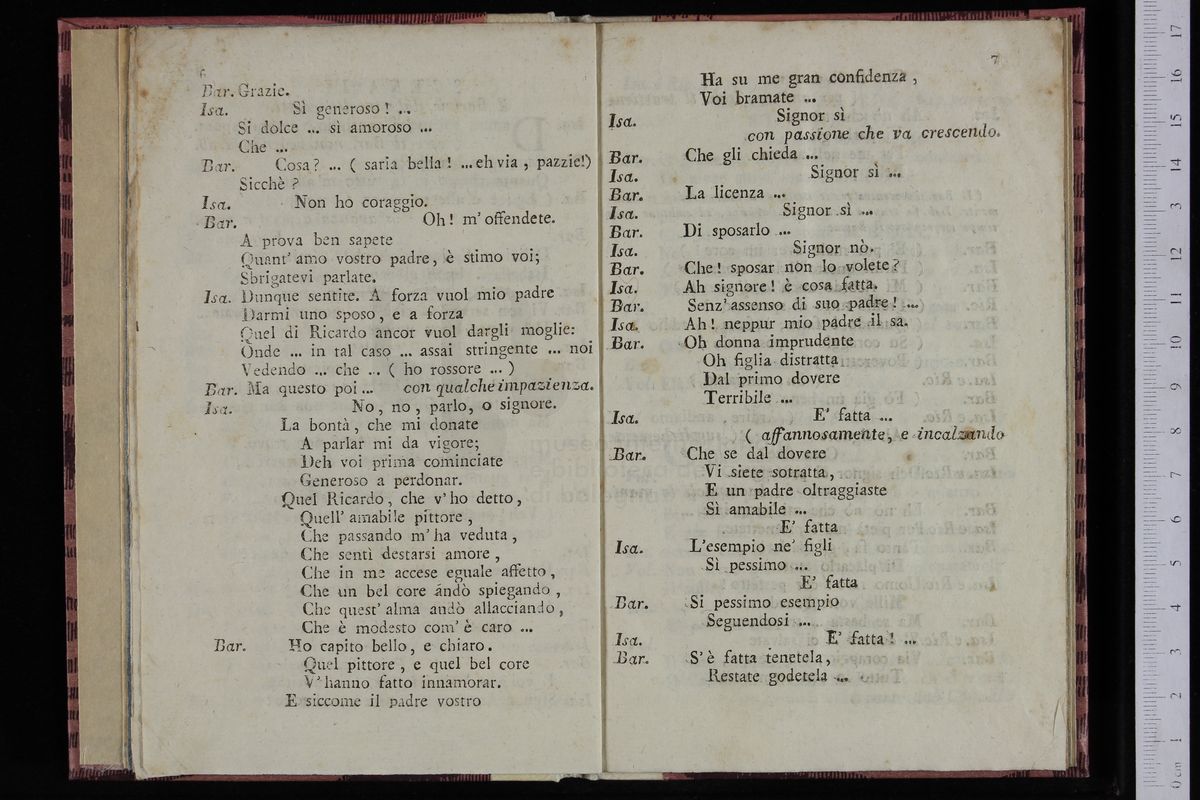 6
Bar. Grazie.
Isa. Sì generoso! ...
Si dolce ... sì amoroso ...
Che ...
Bar. Cosa? ... ( saria bella! ... eh via, pazzie!)
Sicchè?
Isa. Non ho coraggio.
Bar. Oh! m'offendete.
A prova ben sapete
Quant' amo vostro padre, è stimo voi;
Sbrigatevi parlate.
Isa. Dunque sentite. A forza vuol mio padre
Darmi uno sposo, e a forza
Quel di Ricardo ancor vuol dargli moglie:
Onde ... in tal caso ... assai stringente ... noi
Vedendo ... che ... ( ho rossore ... )
Bar. Ma questo poi ... con qualche impazienza.
Isa. No, no, parlo, o signore.
La bontà, che mi donate
A parlar mi da vigore;
Deh voi prima cominciate
Generoso a perdonar.
Quel Ricardo, che v'ho detto,
Quell' amabile pittore,
Che passando m'ha veduta,
Che sentì destarsi amore,
Che in me accese eguale affetto,
Che un bel core andò spiegando,
Che quest' alma andò allacciando,
Che è modesto com' è caro ...
Bar. Ho capito bello, e chiaro.
Quel pittore, e quel bel core
V'hanno fatto innamorar.
E siccome il padre vostro
7
Ha su me gran confidenza,
Voi bramate ...
Isa. Signor sì
con passione che va crescendo.
Bar. Che gli chieda ...
Isa. Signor sì ...
Bar. La licenza ...
Isa. Signor sì ...
Bar. Di sposarlo ...
Isa. Signor nò.
Bar. Che! sposar non lo volete?
Isa. Ah signore! è cosa fatta.
Bar. Senz' assenso di suo padre! ...
Isa. Ah! neppur mio padre il sa.
Bar. Oh donna imprudente
Oh figlia distratta
Dal primo dovere
Terribile ...
Isa. E' fatta ...
( affannosamente, e incalzando
Bar. Che se dal dovere
Vi siete sotratta,
E un padre oltraggiaste
Sì amabile ...
E' fatta
Isa. L'esempio ne' figli
Si pessimo ...
E' fatta
Bar. Si pessimo esempio
Seguendosi ...
Isa. E' fatta! ...
Bar. S'è fatta tenetela,
Restate godetela ...